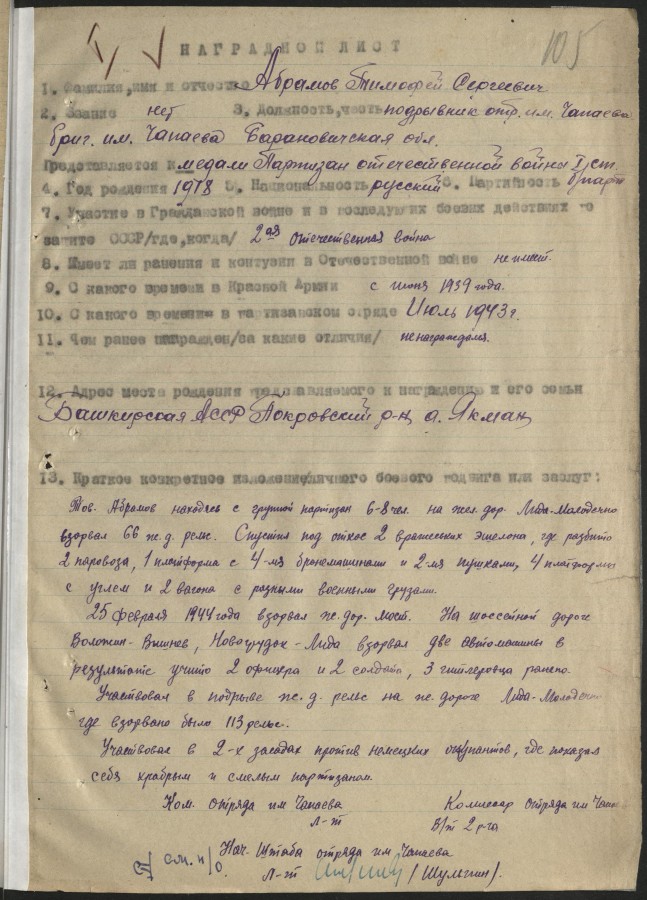 105
НАГРАДНОЙ ЛИСТ
1. Фамилия, имя и отчество Абрамов Тимофей Сергеевич
2. Звание нет 3. Должность, часть подрывник отр. им. Чапаева
бриг. им. Чапаева Барановичская обл.
Представляется к медали Партизан отечественной войны I ст.
4. Год рождения 1918 5. Национальность русский 6. Партийность б/парт
7. Участие в Гражданской войне и в последующих боевых действиях по
защите СССР/где, когда/ 2ая отечественная война
8. Имеет ли ранения и контузии в Отечественной войне не имеет.
9. С какого времени в Красной Армии с июня 1939 года.
10. С какого времени в партизанском отряде Июль 1943 г.
11. Чем ранее награжден/за какие отличия/ не награждался.
12. Адрес места рождения представляемого к награждению и его семьи
Башкирская АССР Покровский р-н д. Якман
13. Краткое конкретное изложение личного боевого подвига или заслуг:
Тов. Абрамов находясь с группой партизан 6-8 чел. на жел. дор. Лида-Молодечно
взорвал 66 ж.д. рельс. Спустил под откос 2 вражеских эшелона, где разбито
2 паровоза, 1 платформа с 4-мя бронемашинами и 2-мя пушками, 4 платформы
с углем и 2 вагона с разными военными грузами.
25 февраля 1944 года взорвал ж. дор. мост. На шоссейной дороге
Воложин-Вишнев, Новогрудок-Лида взорвал две автомашины в
результате убито 2 офицера и 2 солдата, 3 гитлеровца ранено.
Участвовал в подрыве ж.д. рельс на ж. дороге Лида-Молодечно
где взорвано было 113 рельс.
Участвовал в 2-х засадах против немецких оккупантов, где показал
себя храбрым и смелым партизаном.
Ком. отряда им Чапаева Комиссар отряда им Чапа
Л-т В/т 2 р-га
Нач. Штаба отряда им Чапаева
см. н/о. Л-т (Шульгин).